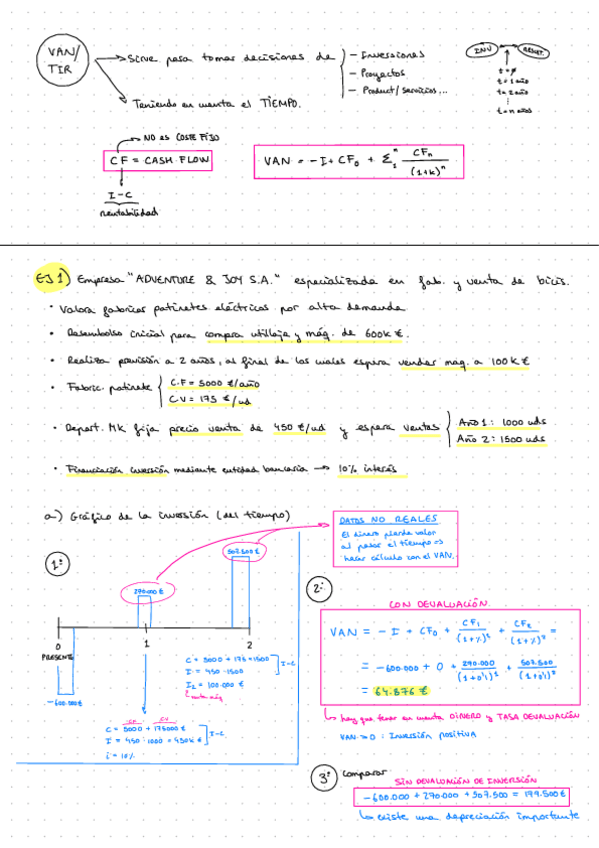 VAN/
TIR
Sirve para tomar decisiones de
- Inversiones
- Proyectos
- Product/servicios...
Teniendo en cuenta el TIEMPO.
INV
RESULT.
t = 0
t = 1 año
t = 2 año
⋮
t = n años
NO es COSTE FIJO
CF = CASH FLOW
I - C
rentabilidad
VAN = -I + CF₀ + Σ₁ⁿ CFn/(1+k)ⁿ
EJ 1) Empresa "ADVENTURE & JOY S.A." especializada en fab. y venta de bicis.
· Valora fabricar patinetes eléctricos por alta demanda
· Desembolso inicial para compra utillaje y máq. de 600k €.
· Realiza previsión a 2 años, al final de los cuales espera vender maq. a 100k €
· Fabric. patinete
C.F = 5000 €/año
C.V = 175 €/ud
· Depart. MK fija precio venta de 450 €/ud y espera ventas
Año 1: 1000 uds
Año 2: 1500 uds
· Financiación inversión mediante entidad bancaria → 10% interés
a) Gráfico de la inversión (del tiempo)
DATOS NO REALES
El dinero pierde valor
al pasar el tiempo =>
hacer cálculo con el VAN.
1º
507.500 €
270.000 €
0
1
2
PRESENTE
-600.000€
C = 5000 + 175·1500
I = 450·1500
I₂ = 100.000 €
venta máq
I-C
CF
CV
C = 5000 + 175000
I = 450·1000 = 450k €
I-C
i = 10%
2º
CON DEVALUACIÓN
VAN = -I + CF₀ + CF₁/(1+%)¹ + CF₂/(1+%)² =
= -600.000 + 0 + 270.000/(1+0'1)¹ + 507.500/(1+0'1)² =
= 64.876 €
hay que tener en cuenta DINERO y TASA DEVALUACIÓN
VAN > 0 : Inversión positiva
3º Comparar
SIN DEVALUACIÓN DE INVERSIÓN
-600.000 + 270.000 + 507.500 = 177.500€
existe una depreciación importante